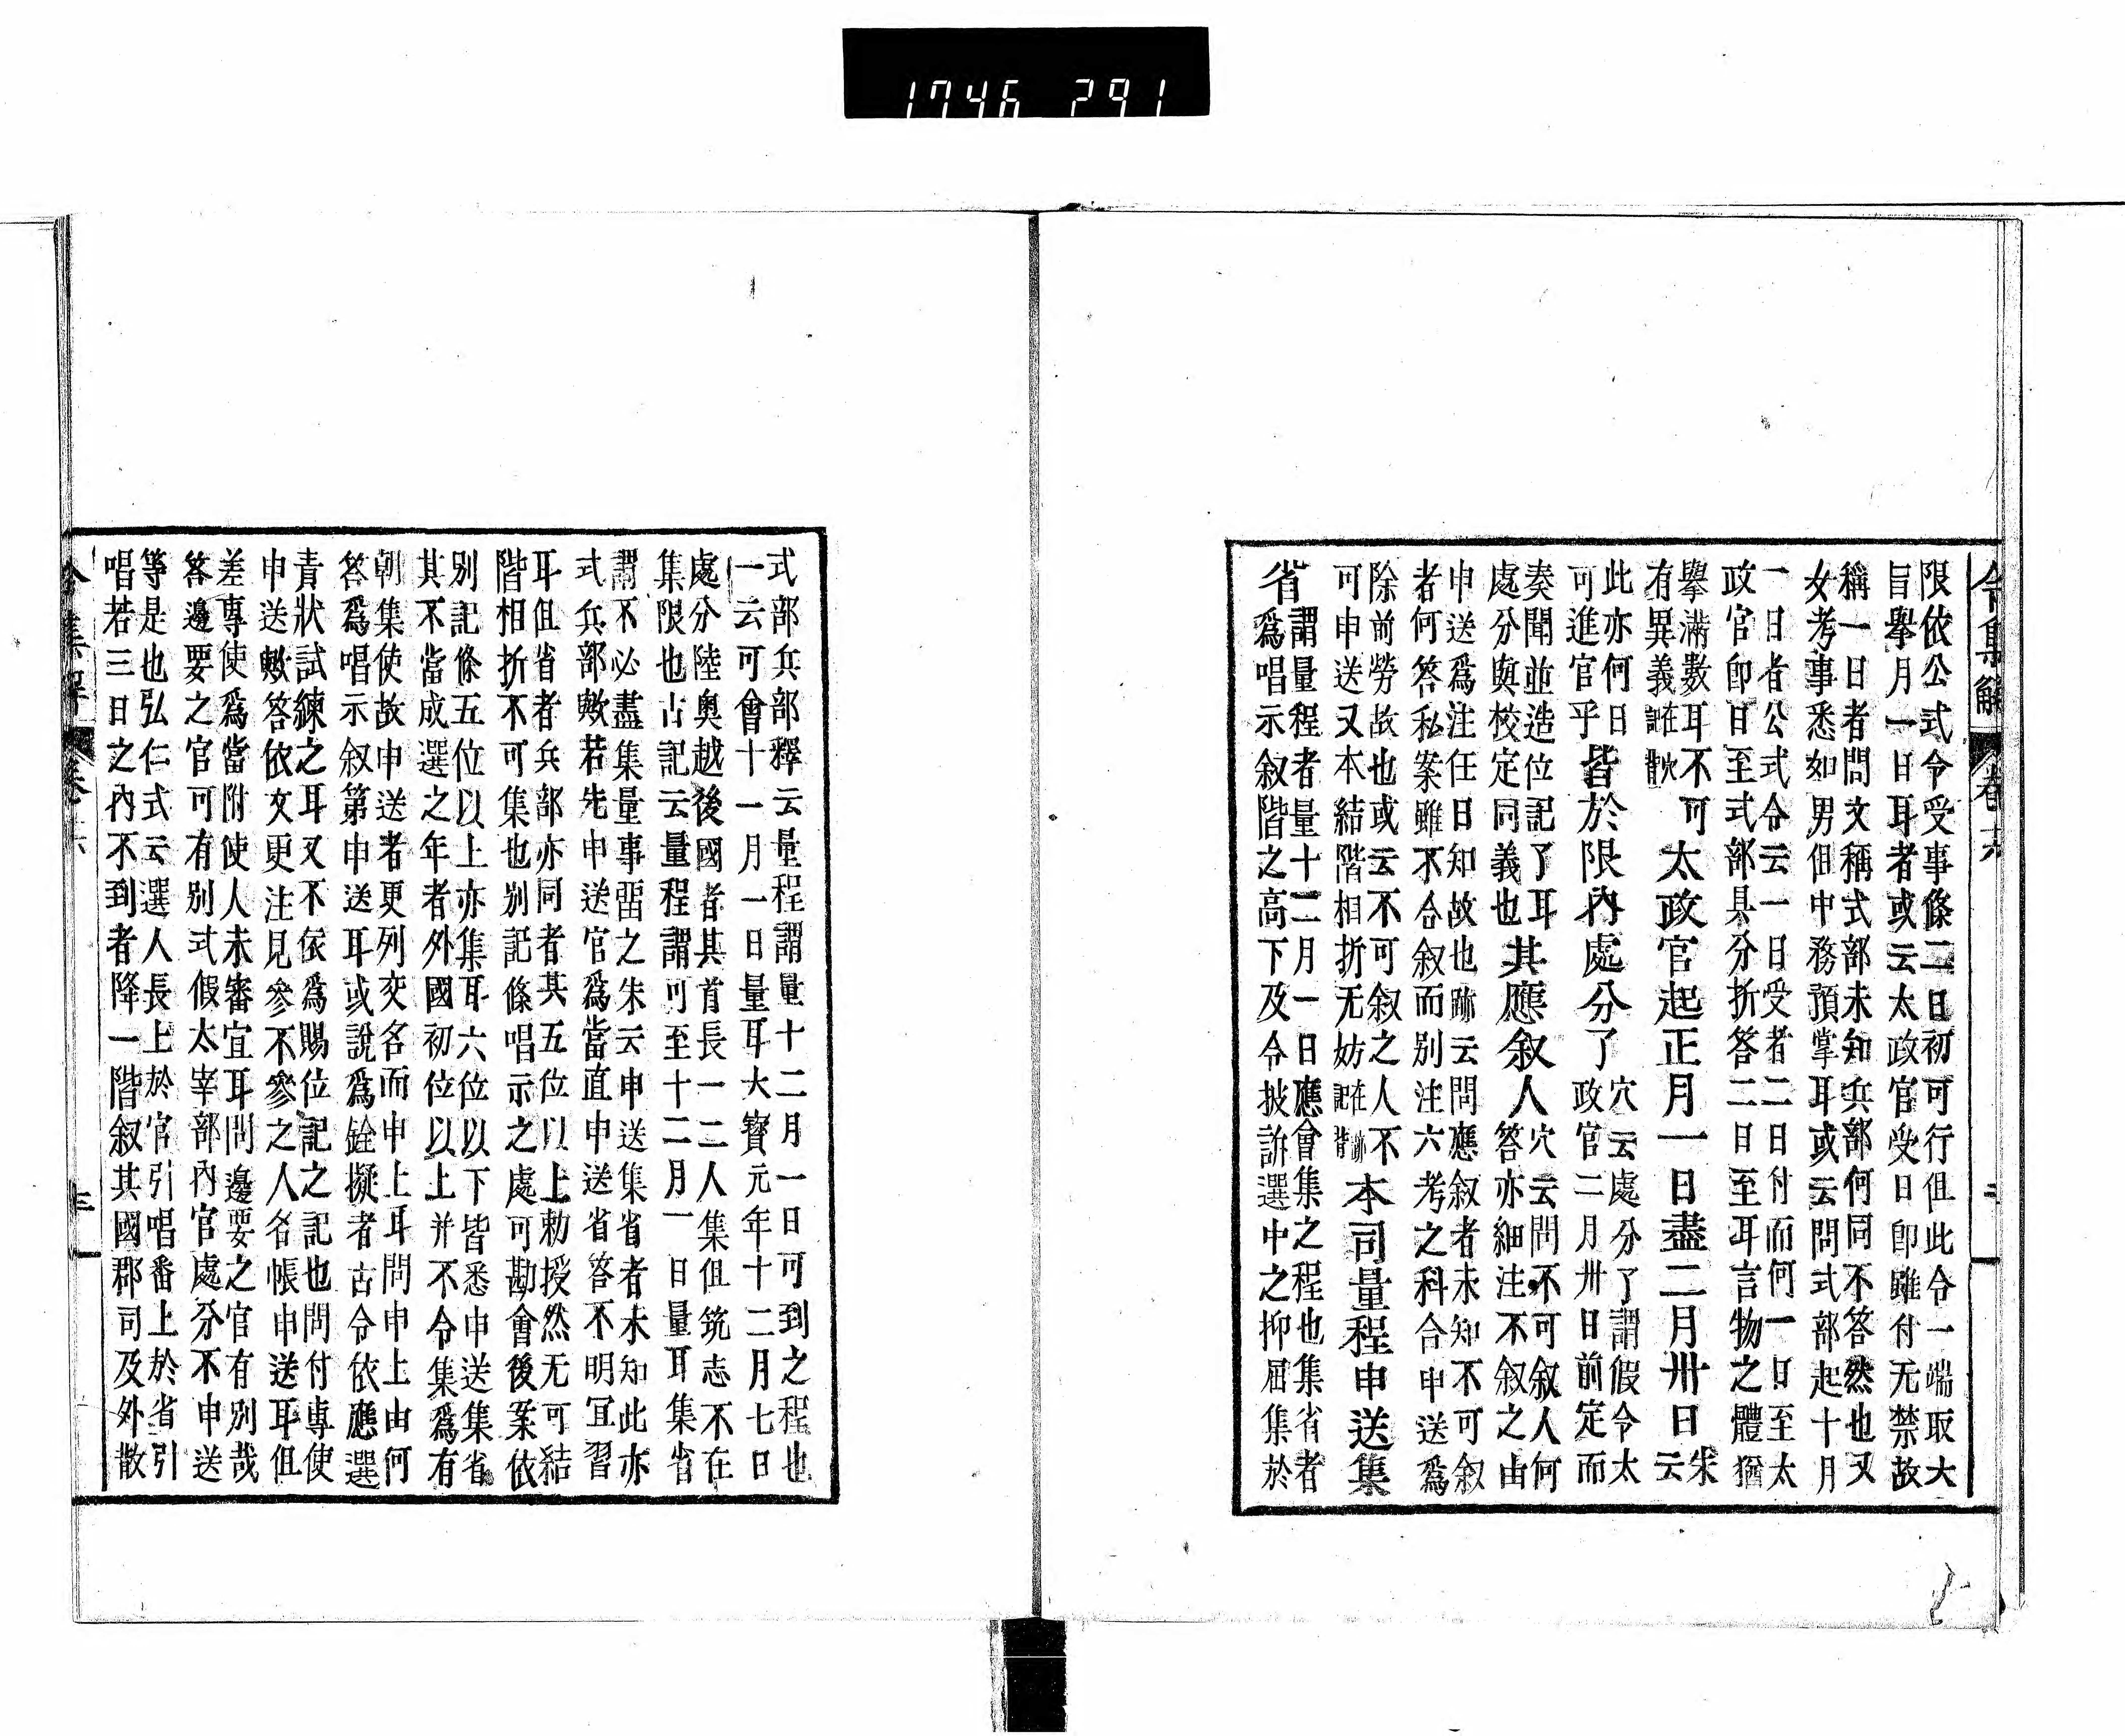 1746 291
令集解 卷六
限依公式令受事條二日初可行但此令一端取大
旨擧月一日耳者或云太政官受日卽雖付无禁故
稱一日者問文稱式部未知兵部何同不答然也又
女考事悉如男但中務預掌耳或云問式部起十月
一日者公式令云一日受者二日付而何一日至太
政官卽日至式部具分折答二日至耳言物之體猶
擧滿數耳不可
有異義
太政官起正月一日盡二月卅日
朱云
此亦何日
可進官乎
皆於限內處分了
穴云處分了謂假令太
政官二月卅日前定而
奏聞並造位記了耳
處分與校定同義也
其應叙人
穴云問不可叙人何
答亦細注不叙之由
申送爲注任日知故也跡云問應叙者未知不可叙
者何答私案雖不合叙而別注六考之科合申送爲
除前勞故也或云不可叙之人不
可申送又本結階相折无妨
本司量程申送集
省
謂量程者量十二月一日應會集之程也集省者
爲唱示叙階之高下及令披訴選中之抑屈集於
式部兵部釋云量程謂量十二月一日可到之程也
一云可會十一月一日量耳大寶元年十二月七日
處分陸奧越後國者其首長一二人集但筑志不在
集限也古記云量程謂可至十二月一日量耳集省
謂不必盡集量事留之朱云申送集省者未知此亦
式兵部歟若先申送官爲當直申送省答不明宜習
耳但省者兵部亦同者其五位以上勅授然无可結
階相折不可集也別記條唱示之處可勘會後案依
別記條五位以上亦集耳六位以下皆悉申送集省
其不當成選之年者外國初位以上并不令集爲有
朝集使故申送者更列交名而申上耳問申上由何
答爲唱示叙第申送耳或說爲銓擬者古令依應選
責狀試練之耳又不依爲賜位記之記也問付專使
申送歟答依文更注見參不參之人名帳申送耳但
差專使爲當附使人未審宜耳問邊要之官有別哉
答邊要之官可有別式假太宰部內官處分不申送
等是也弘仁式云選人長上於官引唱番上於省引
唱若三日之內不到者降一階叙其國郡司及外散
令集解 卷六